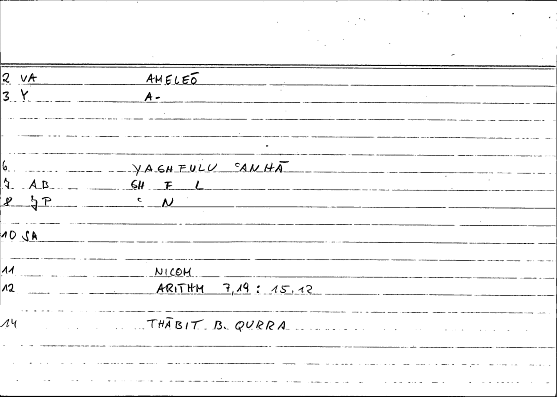 2 VA AMELEŌ
3 Y A-
6 YAGHFULU ʿANHĀ
7 AB GH F L
8 JP ʿ N
10 SA
11 NICOM
12 ARITHM 7,19 : 15,12
14 THĀBIT B. QURRA